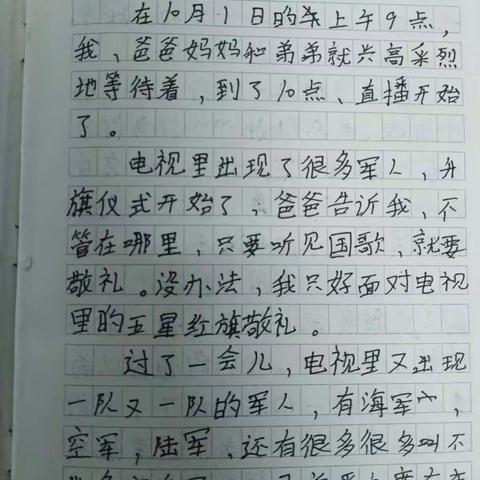 在10月1日的早上午9点，
我、爸爸妈妈和弟弟就兴高采烈
地等待着，到了10点、直播开始
了。
电视里出现了很多军人，升
旗仪式开始了，爸爸告诉我，不
管在哪里，只要听见国歌，就要
敬礼。没办法，我只好面对电视
里的五星红旗敬礼。
过了一会儿，电视里又出现
一队又一队的军人，有海军，
空军，陆军，还有很多很多叫不